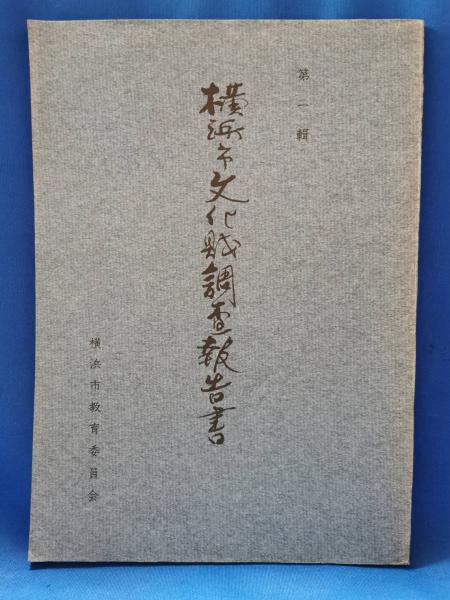 第一輯
横浜市文化財調査報告書
横浜市教育委員会